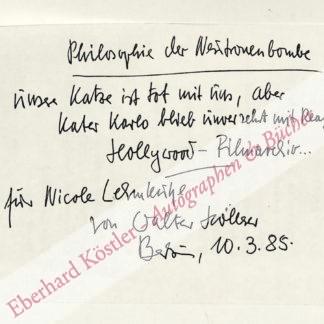 Philosophie der Neutronenbombe
unsre Katze ist tot mit uns, aber
Kater Karlo blieb unversehrt mit Rea
Hollywood - Filmarchiv...
für Nicole
von Walter Höllerer
Berlin, 10.3.85.
Eberhard Köstler Autographen & Bücher